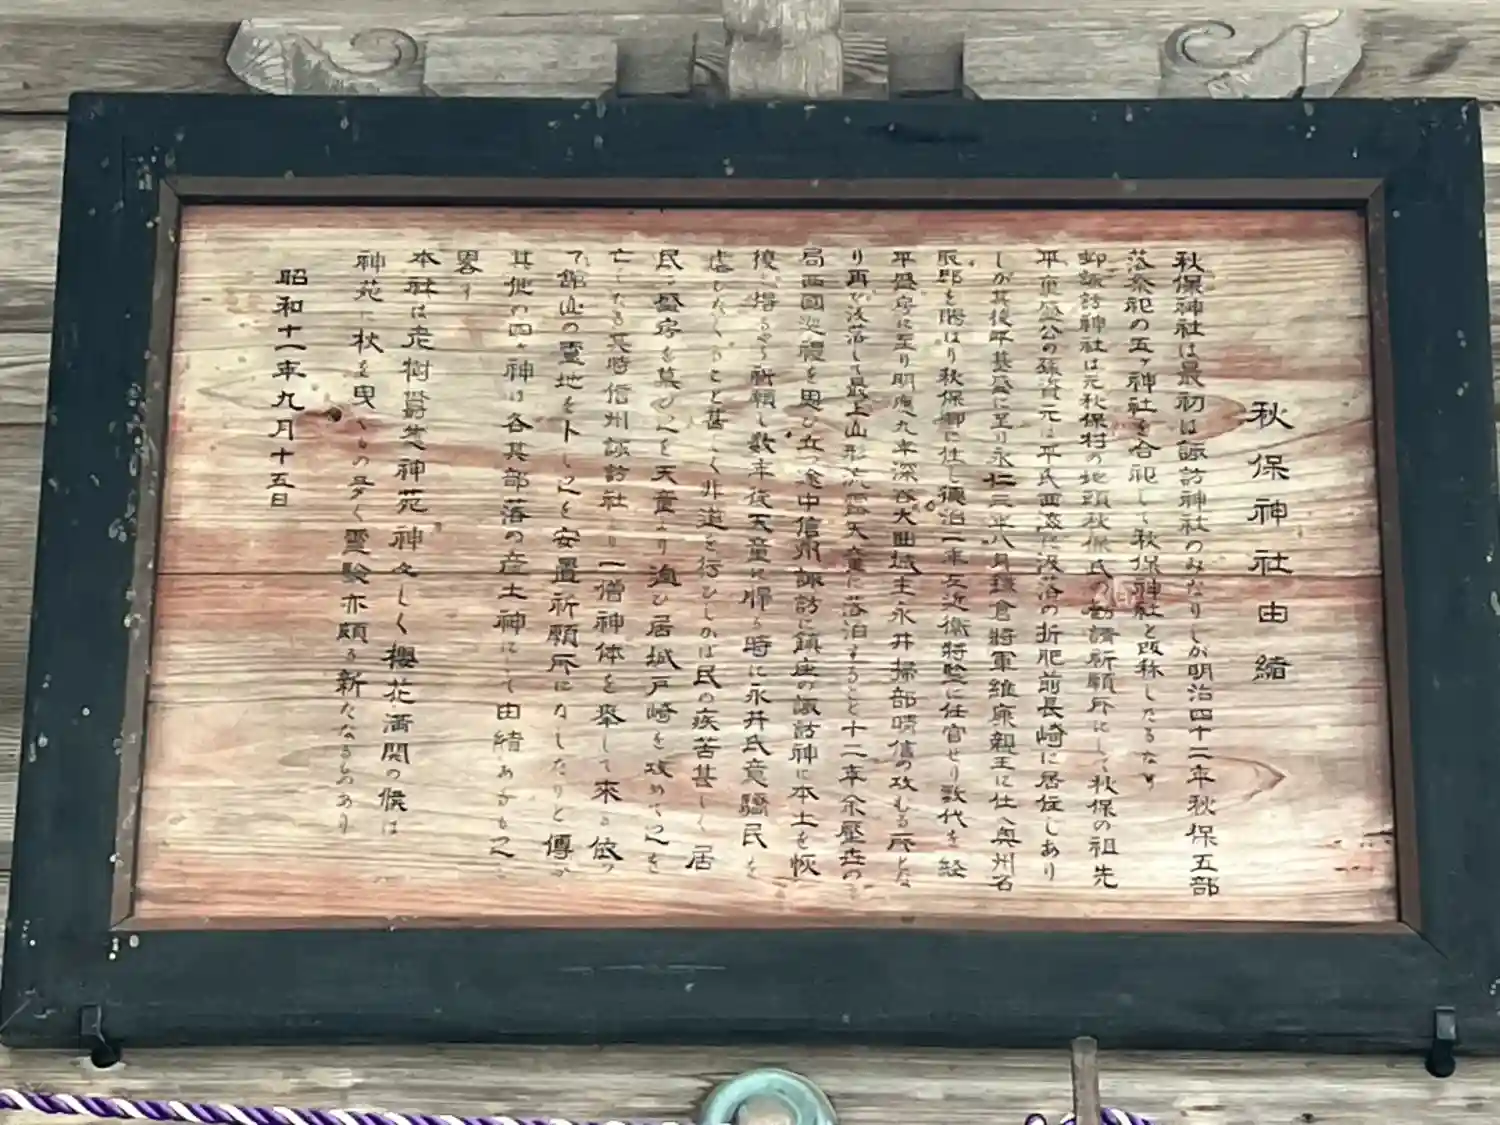 秋保神社由緒
秋保神社は最初は諏訪神社のみなりしが明治四十二年秋保五部
落祭祀の五ヶ神社を合祀して秋保神社と改称したるなり
卸諏訪神社は元秋保村の地頭秋保氏の勧請祈願所にして秋保の祖先
平重盛公の孫資元は平氏西海に没落の折肥前長崎に居住しあり
しが其後平基盛に至り永仁三年八月鎌倉將軍維康親王に仕へ奥州名
取郡を賜はり秋保郷に住し徳治二年左近衛將監に任官せり数代を経
平盛房に至り明應九年深谷大曲城主永井掃部晴信の攻むる所とな
り再び没落して最上山形流雲天童に落泊すること十二年余歴世の
局西國巡視を思ひ立ち途中信州諏訪に鎮座の諏訪神に本土を恢
復 祈願し数年後天童に帰る時に永井氏意驕民を
虐 こと甚しく非道を行ひしかば民の疾苦甚しく居
民 盛房を慕ひ之を天童より迎ひ居城戸崎を攻めて之を
亡 長時信州諏訪社より一僧神体を奉して來る依つ
て館山の霊地を卜し之を安置祈願所になしたりと傳ふ
其他の四ヶ神は各其部落の産土神にして由緒あるも之
畧す
本社は老樹欝蒼神苑神々しく櫻花満開の候は
神苑に杖を曳くもの多く霊験亦頗る新たなるものあり
昭和十一年九月十五日